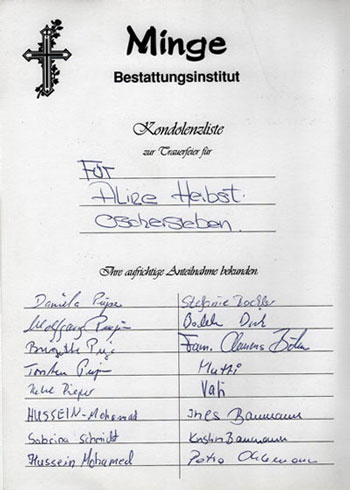 Minge
Bestattungsinstitut
Kondolenzliste
zur Trauerfeier für
Für
Alize Herbst.
Oschersleben.
Ihre aufrichtige Anteilnahme bekunden
Daniela Stefanie
Wolfgang
Brigitte Fam. Clemens Böhm
Torsten Mutti
Pieper Vati
HUSSEIN-Mohamad Ines Baumann
Sabrina Schmidt Kristin Baumann
Hussein Mohamed Petra